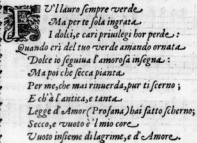 FV'l lauro sempre verde
Ma per te sola ingrata
I dolci, e cari priuilegi hor perde:
Quando crì del tuo verde amando ornata
Dolce io seguiua l'amorosa insegna:
Ma poi che secca pianta
Per me, che mai rinuerda, pur ti scerno;
E ch'à l'antica, e tanta
Legge d'Amor (Profana) hai fatto scherno;
Secco, e vuoto è 'l mio core
Vuoto insieme di lagrime, e d'Amore.